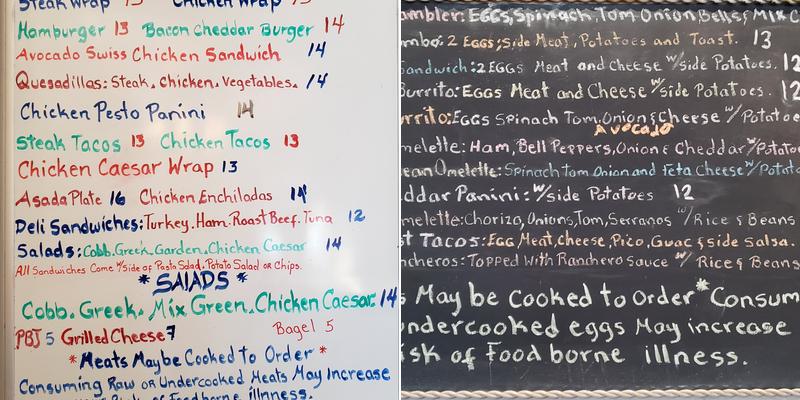 Steak Wrap 13 Chicken Wrap 13
Hamburger 13 Bacon Cheddar Burger 14
Avocado Swiss Chicken Sandwich 14
Quesadillas: Steak, Chicken, Vegetables. 14
Chicken Pesto Panini 14
Steak Tacos 13 Chicken Tacos 13
Chicken Caesar Wrap 13
Asada Plate 16 Chicken Enchiladas 14
Deli Sandwiches: Turkey. Ham. Roast Beef. Tuna 12
Salads: Cobb. Greek. Garden. Chicken Caesar 14
All Sandwiches Come w/side of Pasta Salad, Potato Salad or Chips.
*SALADS*
Cobb. Greek. Mix Green. Chicken Caesar. 14
PBJ 5 Grilled Cheese 7 Bagel 5
*Meats Maybe Cooked to Order*
Consuming Raw or Undercooked Meats May Increase
of Foodborne illnness.
ambler: EGGS, Spinach, Tom Onion, Bells & Mix C
mbo: 2 Eggs, Side Meat, Potatoes and Toast. 13
Sandwich: 2 EGGs Meat and Cheese w/side Potatoes. 12
Burrito: EGGs Meat and Cheese w/side Potatoes. 12
rrito: EGGs Spinach Tom, Onion & Cheese w/Potatoe
Avocado
melette: Ham, Bell Peppers, Onion & Cheddar w/Potato
ean Omelette: Spinach Tom Onion and Feta Cheese w/Potato
ddar Panini: w/side Potatoes 12
melette: Chorizo, Onions, Tom, Serranos w/Rice & Beans
t Tacos: EGG, Meat, Cheese, Pico, Guac & side Salsa.
ncheros: Topped with Ranchero Sauce w/ Rice & Beans
s May be Cooked to Order *Consum
undercooked eggs May increase
isk of Food borne illness.